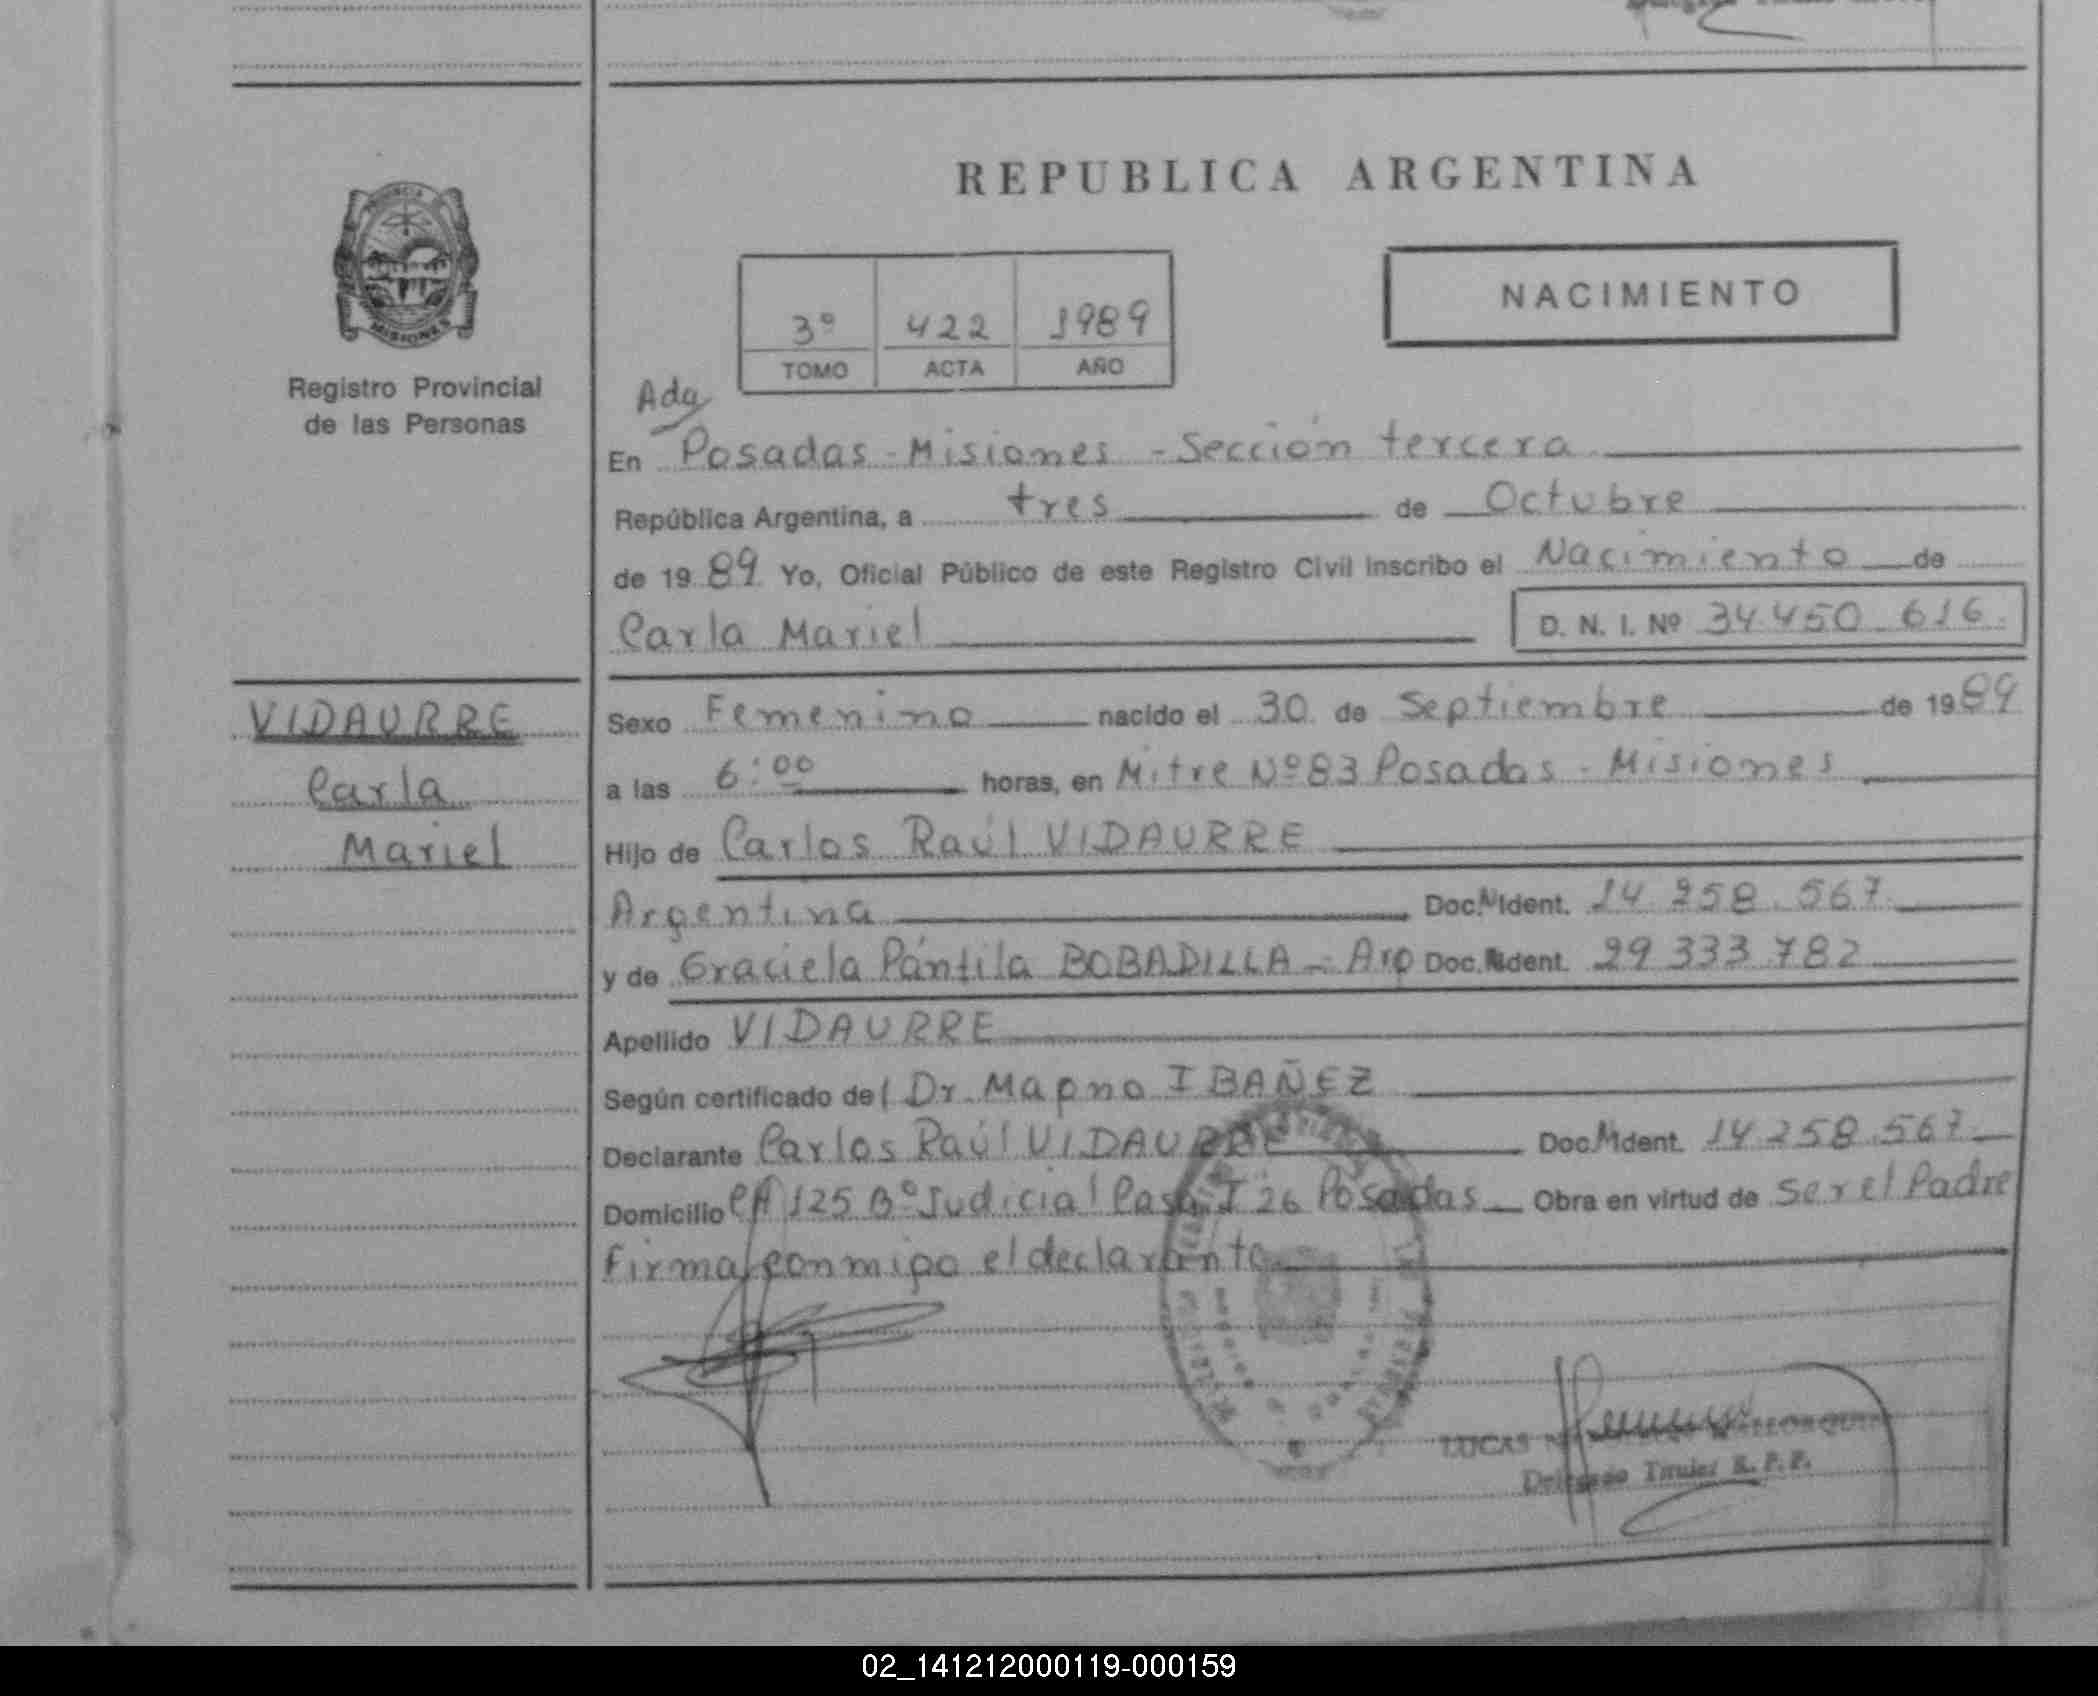 REPUBLICA ARGENTINA
MISIONES
Registro Provincial
de las Personas
3º 422 1989
TOMO ACTA AÑO
NACIMIENTO
Ada
En Posadas - Misiones - Sección tercera
República Argentina, a tres de Octubre
de 1989 Yo, Oficial Público de este Registro Civil inscribo el Nacimiento de
Carla Mariel D. N. I. Nº 34.450.616.
VIDAURRE
Carla
Mariel
Sexo Femenino nacido el 30 de Septiembre de 1989
a las 6:00 horas, en Mitre Nº 83 Posadas - Misiones
Hijo de Carlos Raúl VIDAURRE
Argentina Doc. N Ident. 14.258.567
y de Graciela Pántila BOBADILLA - Arg Doc. Ident. 29 333 782
Apellido VIDAURRE
Según certificado del Dr. Magno IBAÑEZ
Declarante Carlos Raúl VIDAURRE Doc. N Ident. 14.258.567
Domicilio CH 125 Bº Judicial Casa I 26 Posadas Obra en virtud de ser el Padre
firma conmigo el declarante
LUCAS
Delegado Titular R. P. P.
02_141212000119-000159